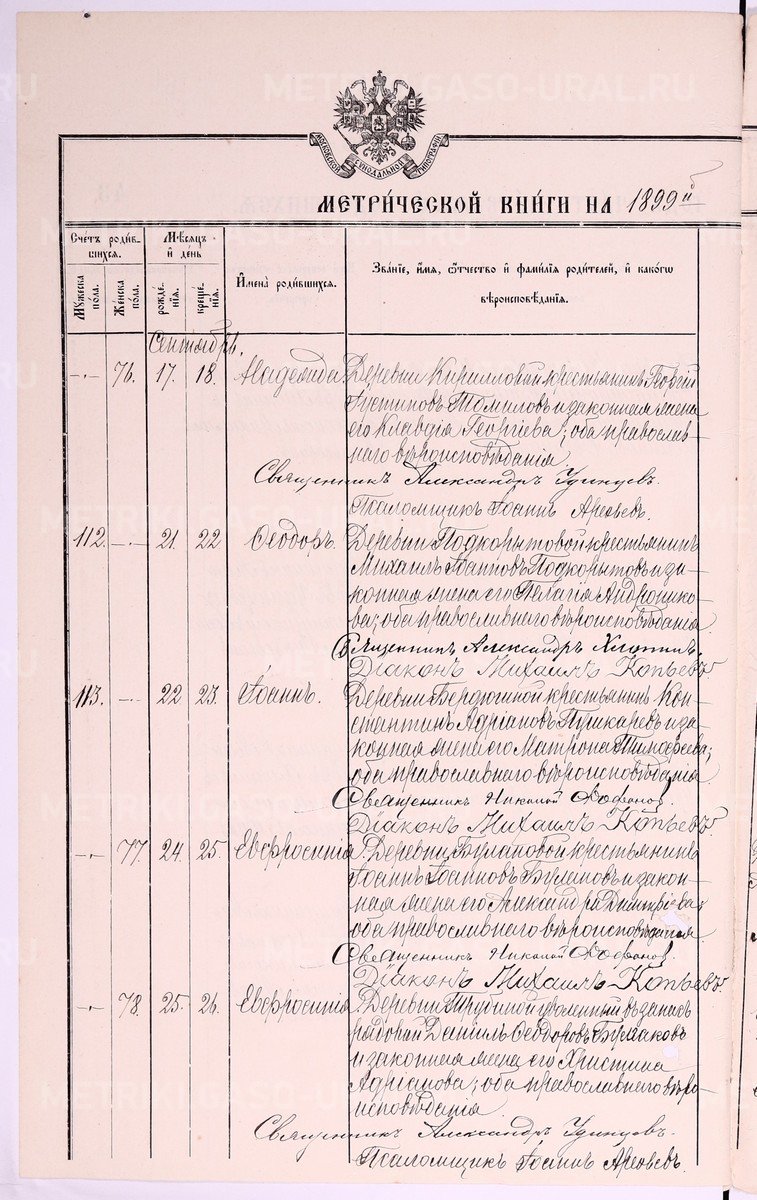 METRIKI.GASO-URAL.RU
МОСКОВСКОЙ СѴНОДАЛЬНОЙ ТИПОГРАФІИ
МЕТРИ́ЧЕСКОЙ КНИ́ГИ НА 1899й
Сче́тъ роди́вшихсѧ.
Мꙋжеска по́ла.
Же́нска по́ла.
Мѣ́сѧцъ и де́нь
рожде́нїѧ.
креще́нїѧ.
И҆мена̀ роди́вшихсѧ.
Зва́нїе, и҆́мѧ, ѻ҆́тчество и҆ фами́лїѧ роди́телей, и҆ како́гѡ вѣроисповѣ́данїѧ.
Сентябрь.
-"- 76. 17. 18. Надежда Деревни Кирилловой крестьянинъ Георгій
Іустиновъ Томиловъ и законная жена
его Клавдія Георгіева; оба православ-
наго вѣроисповѣданія.
Священникъ Александръ Удинцевъ.
Псаломщикъ Іоаннъ Арефьевъ.
112. -"- 21. 22 Ѳеодоръ. Деревни Подкорытовой крестьянинъ
Михаилъ Іоанновъ Подкорытовъ и за-
конная жена его Пелагія Андронико-
ва; оба православнаго вѣроисповѣданія.
Священникъ Александръ
Діаконъ Михаилъ Копьевъ
113. -"- 22 23. Іоаннъ. Деревни Бердюгиной крестьянинъ Кон-
стантинъ Адріановъ Пушкаревъ и за-
конная жена его Матрона Тимоѳеева;
оба православнаго вѣроисповѣданія.
Священникъ Николай
Діаконъ Михаилъ Копьевъ
-"- 77. 24. 25. Евфросинія. Деревни Булановой крестьянинъ
Іоаннъ Іоанновъ и закон-
ная жена его Александра Димитріева;
оба православнаго вѣроисповѣданія.
Священникъ Николай
Діаконъ Михаилъ Копьевъ
-"- 78. 25. 26. Евфросинія. Деревни Трубиной уволенный въ запасъ
рядовой Даніилъ Ѳеодоровъ
и законная жена его Христина
Адріанова; оба православнаго вѣро-
исповѣданія.
Священникъ Александръ Удинцовъ.
Псаломщикъ Іоаннъ Арефьевъ.